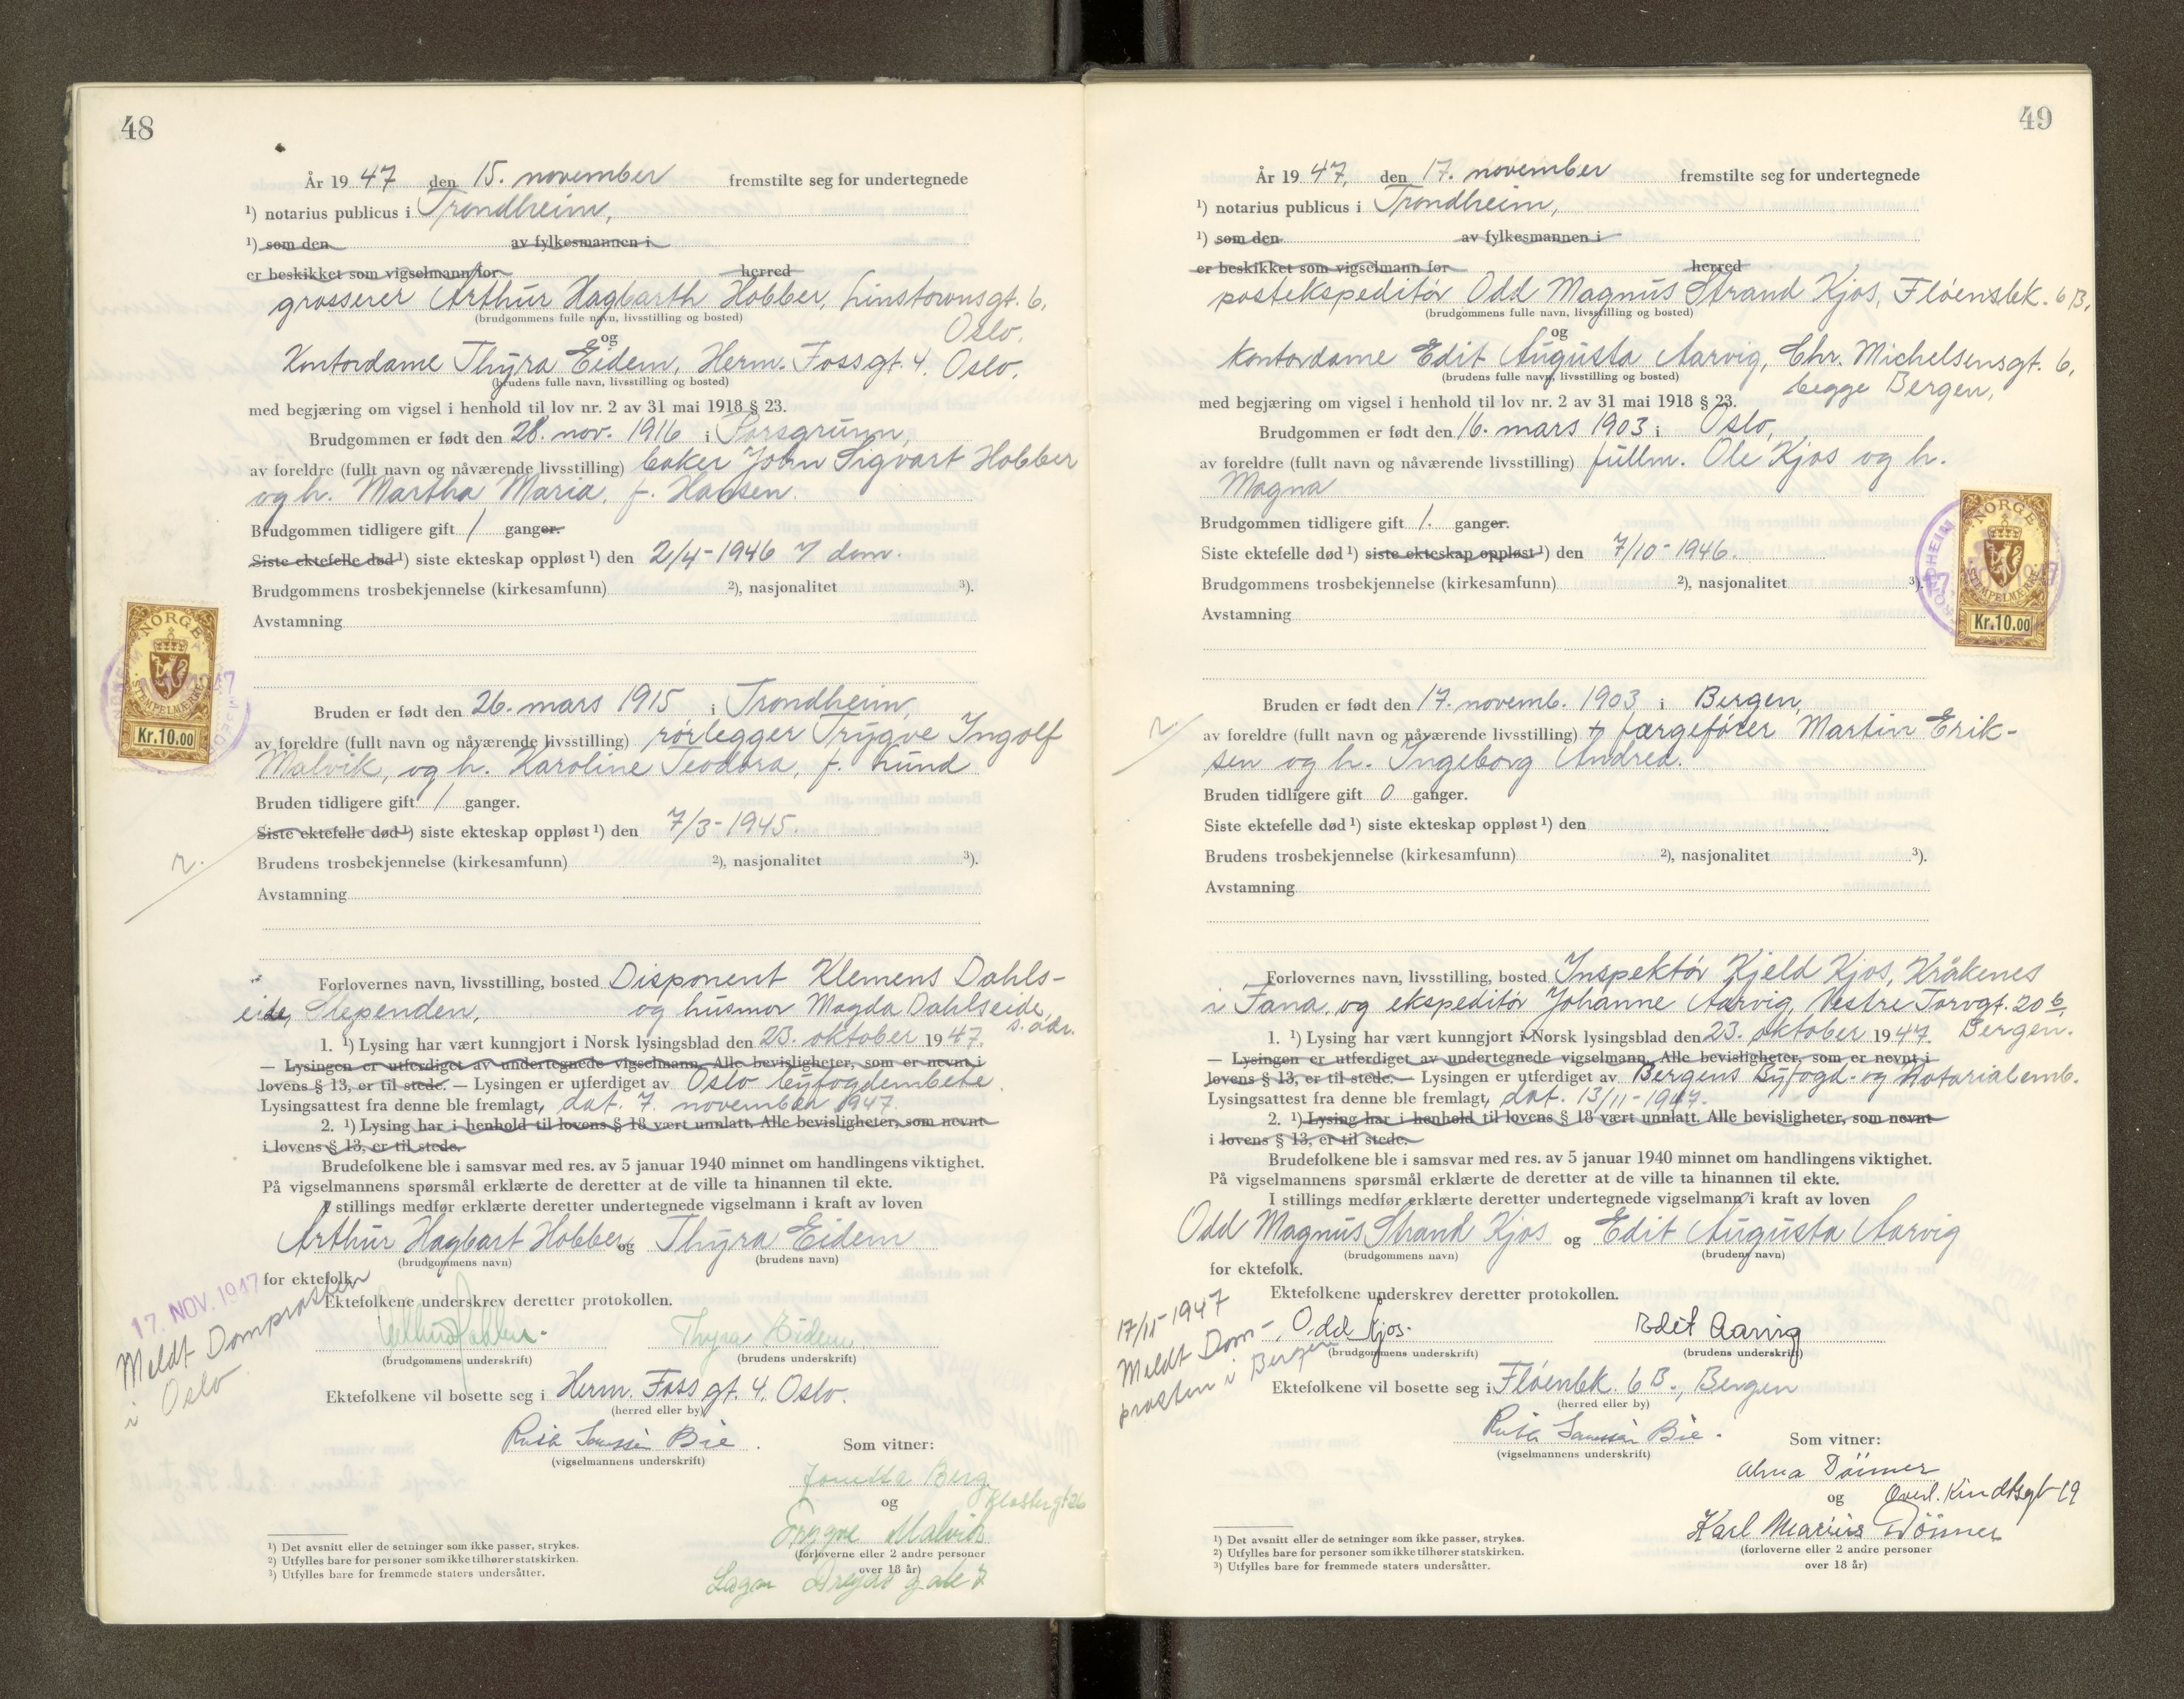 48
År 1947 den 15. november fremstilte seg for undertegnede
¹) notarius publicus i Trondheim,
¹) som den av fylkesmannen i
er beskikket som vigselmann for herred
grosserer Arthur Hagbarth Hobber, Linstowsgt. 6,
(brudgommens fulle navn, livsstilling og bosted)
Oslo,
og
Kontordame Thyra Eidem, Herm. Fossgt. 4, Oslo.
(brudens fulle navn, livsstilling og bosted)
med begjæring om vigsel i henhold til lov nr. 2 av 31 mai 1918 § 23.
Brudgommen er født den 28. nov. 1916 i Porsgrunn,
av foreldre (fullt navn og nåværende livsstilling) baker John Sigvart Hobber
og h. Martha Maria, f. Hansen.
Brudgommen tidligere gift 1 ganger.
Siste ektefelle død ¹) siste ekteskap oppløst ¹) den 2/4-1946 dom.
Brudgommens trosbekjennelse (kirkesamfunn) ²), nasjonalitet ³).
Avstamning
NORGE
STEMPELMERKE
Kr.10.00
Bruden er født den 26. mars 1915 i Trondheim,
av foreldre (fullt navn og nåværende livsstilling) rørlegger Trygve Ingolf
Malvik, og h. Karoline Teodora, f. Lund
Bruden tidligere gift 1 ganger.
Siste ektefelle død ¹) siste ekteskap oppløst ¹) den 7/3-1945.
r.
Brudens trosbekjennelse (kirkesamfunn) ²), nasjonalitet ³).
Avstamning
Forlovernes navn, livsstilling, bosted Disponent Klemens Dahls-
eide, Slependen, og husmor Magda Dahlseide,
s. adr.
1. ¹) Lysing har vært kunngjort i Norsk lysingsblad den 23. oktober 1947.
— Lysingen er utferdiget av undertegnede vigselmann. Alle bevisligheter, som er nevnt i
lovens § 13, er til stede. — Lysingen er utferdiget av Oslo byfogdembete.
Lysingsattest fra denne ble fremlagt, dat. 7. november 1947.
2. ¹) Lysing har i henhold til lovens § 18 vært unnlatt. Alle bevisligheter, som nevnt
i lovens § 13, er til stede.
Brudefolkene ble i samsvar med res. av 5 januar 1940 minnet om handlingens viktighet.
På vigselmannens spørsmål erklærte de deretter at de ville ta hinannen til ekte.
I stillings medfør erklærte deretter undertegnede vigselmann i kraft av loven
Arthur Hagbart Hobber og Thyra Eidem
(brudgommens navn) (brudens navn)
for ektefolk.
17. NOV. 1947
Meldt Domprosten
i Oslo
Ektefolkene underskrev deretter protokollen.
Thyra Eidem
(brudgommens underskrift) (brudens underskrift)
Ektefolkene vil bosette seg i Herm. Foss gt. 4, Oslo.
(herred eller by)
Ruth Bie.
Som vitner:
(vigselmannens underskrift)
Berg
og
Klostergt 26
Trygve Malvik
(forloverne eller 2 andre personer
over 18 år)
¹) Det avsnitt eller de setninger som ikke passer, strykes.
²) Utfylles bare for personer som ikke tilhører statskirken.
³) Utfylles bare for fremmede staters undersåtter.
49
År 1947, den 17. november fremstilte seg for undertegnede
¹) notarius publicus i Trondheim,
¹) som den av fylkesmannen i
er beskikket som vigselmann for herred
postekspeditør Odd Magnus Strand Kjos, Fløensbk. 6 B,
(brudgommens fulle navn, livsstilling og bosted)
og
kontordame Edit Augusta Aarvig, Chr. Michelsensgt. 6,
(brudens fulle navn, livsstilling og bosted)
begge Bergen,
med begjæring om vigsel i henhold til lov nr. 2 av 31 mai 1918 § 23.
Brudgommen er født den 16. mars 1903 i Oslo,
av foreldre (fullt navn og nåværende livsstilling) fullm. Ole Kjos og h.
Magna
Brudgommen tidligere gift 1. ganger.
Siste ektefelle død ¹) siste ekteskap oppløst ¹) den 7/10-1946.
Brudgommens trosbekjennelse (kirkesamfunn) ²), nasjonalitet ³).
Avstamning
NORGE
STEMPELMERKE
Kr.10.00
Bruden er født den 17. novemb. 1903 i Bergen,
r.
av foreldre (fullt navn og nåværende livsstilling) † færgefører Martin Erik-
sen og h. Ingeborg Andrea.
Bruden tidligere gift 0 ganger.
Siste ektefelle død ¹) siste ekteskap oppløst ¹) den
Brudens trosbekjennelse (kirkesamfunn) ²), nasjonalitet ³).
Avstamning
Forlovernes navn, livsstilling, bosted Inspektør Kjeld Kjos, Kråkenes
i Fana, og ekspeditør Johanne Aarvig, Vestre Torvgt. 20 b,
Bergen.
1. ¹) Lysing har vært kunngjort i Norsk lysingsblad den 23. oktober 1947.
— Lysingen er utferdiget av undertegnede vigselmann. Alle bevisligheter, som er nevnt i
lovens § 13, er til stede. — Lysingen er utferdiget av Bergens Byfogd- og Notarialemb.
Lysingsattest fra denne ble fremlagt, dat. 13/11-1947.
2. ¹) Lysing har i henhold til lovens § 18 vært unnlatt. Alle bevisligheter, som nevnt
i lovens § 13, er til stede.
Brudefolkene ble i samsvar med res. av 5 januar 1940 minnet om handlingens viktighet.
På vigselmannens spørsmål erklærte de deretter at de ville ta hinannen til ekte.
I stillings medfør erklærte deretter undertegnede vigselmann i kraft av loven
Odd Magnus Strand Kjos og Edit Augusta Aarvig
(brudgommens navn) (brudens navn)
for ektefolk.
Ektefolkene underskrev deretter protokollen.
17/11-1947
Meldt Dom-
prosten i Bergen
Odd Kjos. Edit Aarvig
(brudgommens underskrift) (brudens underskrift)
Ektefolkene vil bosette seg i Fløenbk. 6 B., Bergen
(herred eller by)
Ruth Bie.
Som vitner:
(vigselmannens underskrift)
og
Overl. Kindtsgt 19
Karl Marius
(forloverne eller 2 andre personer
over 18 år)
¹) Det avsnitt eller de setninger som ikke passer, strykes.
²) Utfylles bare for personer som ikke tilhører statskirken.
³) Utfylles bare for fremmede staters undersåtter.